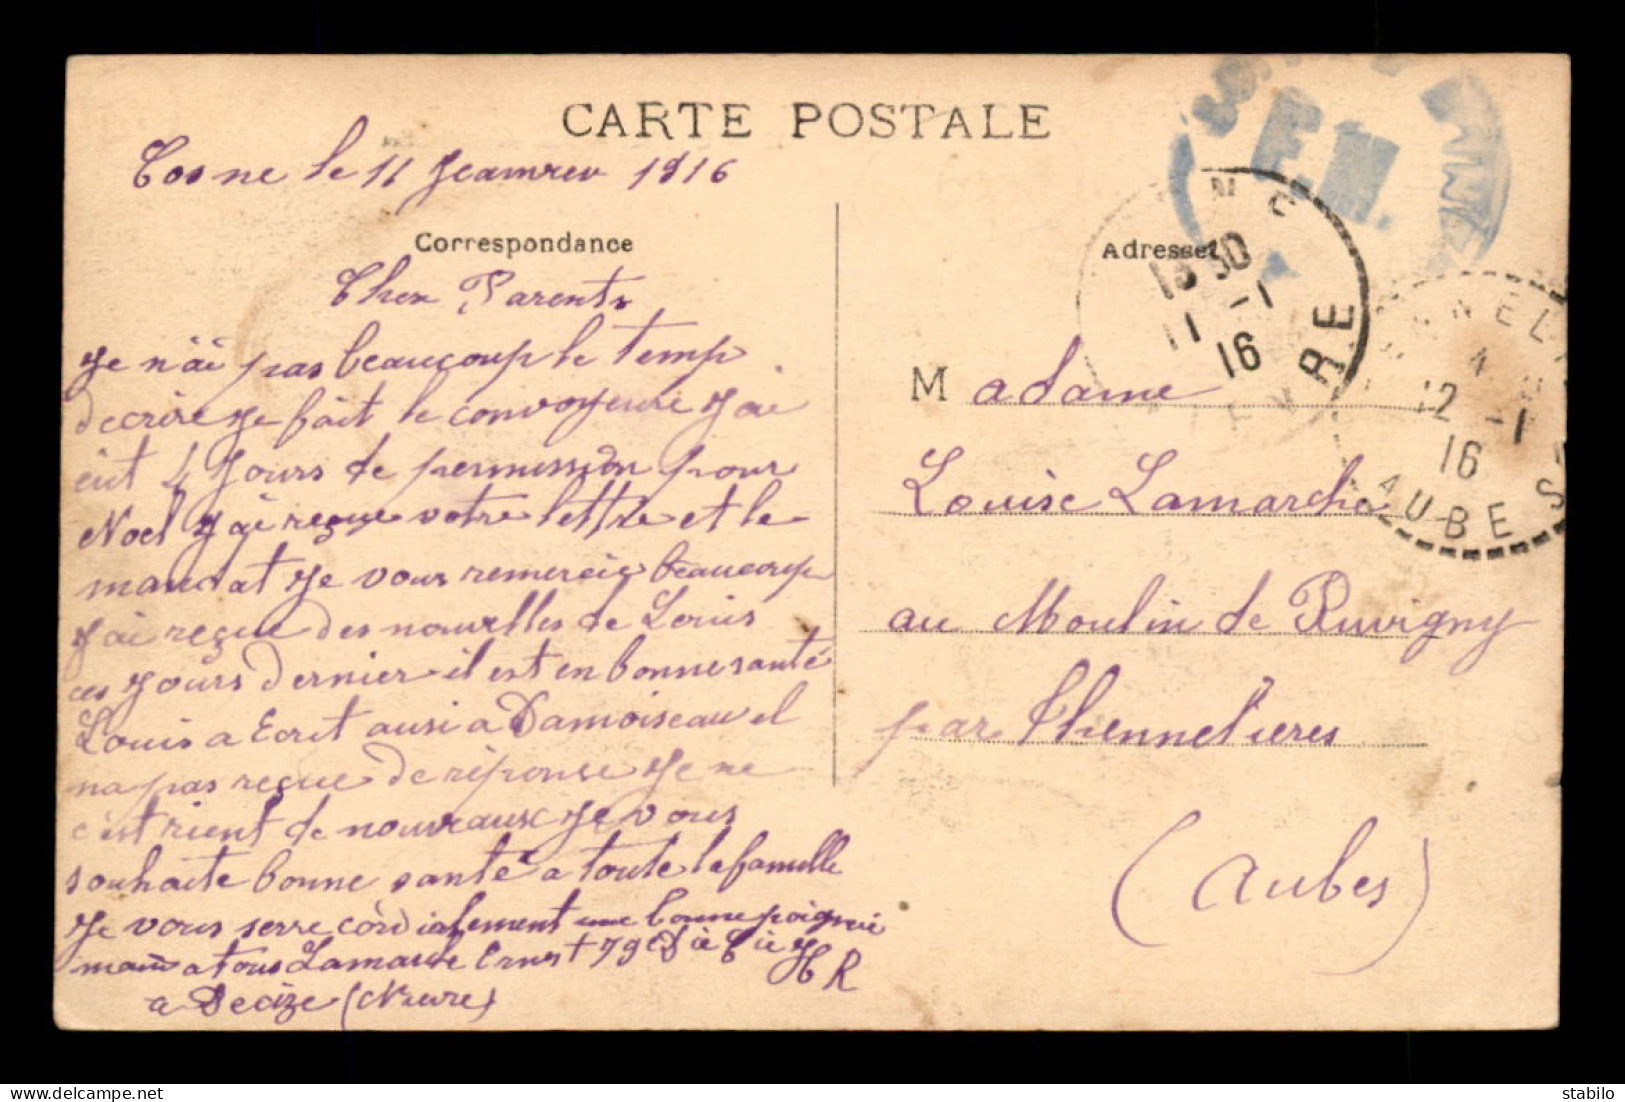 CARTE POSTALE
Cosne le 11 Jeamvrev 1916
Correspondance
Adresse
Cher Parents
Je n'ai pas beaucoup le temp
decrire je fait le convoyeure J'ai
eut 4 Jours de permission pour
Noel J'ai reçue votre lettre et le
mandat Je vous remercie beaucoup
J'ai reçue des nouvelles de Louis
ces Jours dernier il est en bonne santé
Louis a Ecrit ausi a Damoiseau el
na pas reçue de réponse Je ne
c'est rient de nouveaux Je vous
souhaite bonne santé a toute la famille
Je vous serre cordialement une bonne poignée
main a tous Lamarche Ernest 79e
H R
a Decize (Nievre)
Madame
Louise Lamarche
au Moulin de Ruvigny
par Thennelieres
(Aubes)
NE
13 30
11 -1
16
NIEVRE
NNEL
4
12 -1
16
AUBE